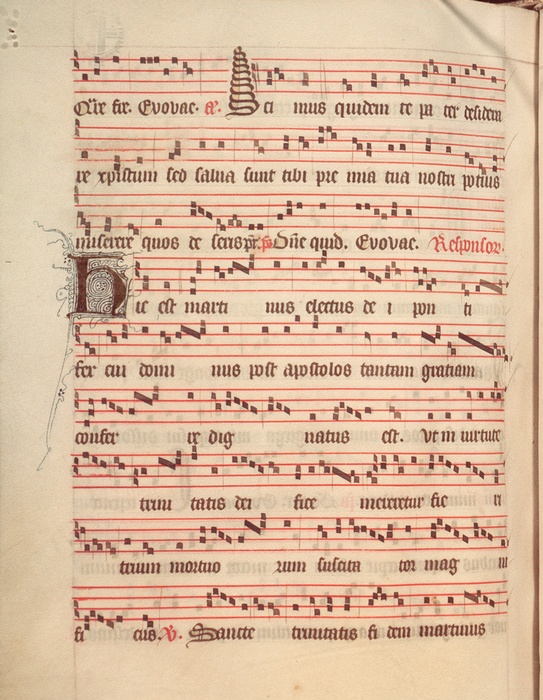 Qũe fix. Evovae. a.̃ Sci mus quidem te pa ter desidera
re xpistum sed salua sunt tibi pre mia tua nostri potius
miserere quos de seris ps. Dñe quid. Evovae. Responsor.
Hic est marti nus electus de i pon ti
fex cui domi nus post apostolos tantam gratiam
confer re dig natus est. Vt in uirtute
trini tatis dei fice mereretur fie ri
trium mortuo rum suscita tor mag ni
fi cus. V. Sancte trinitatis fi dem martinus